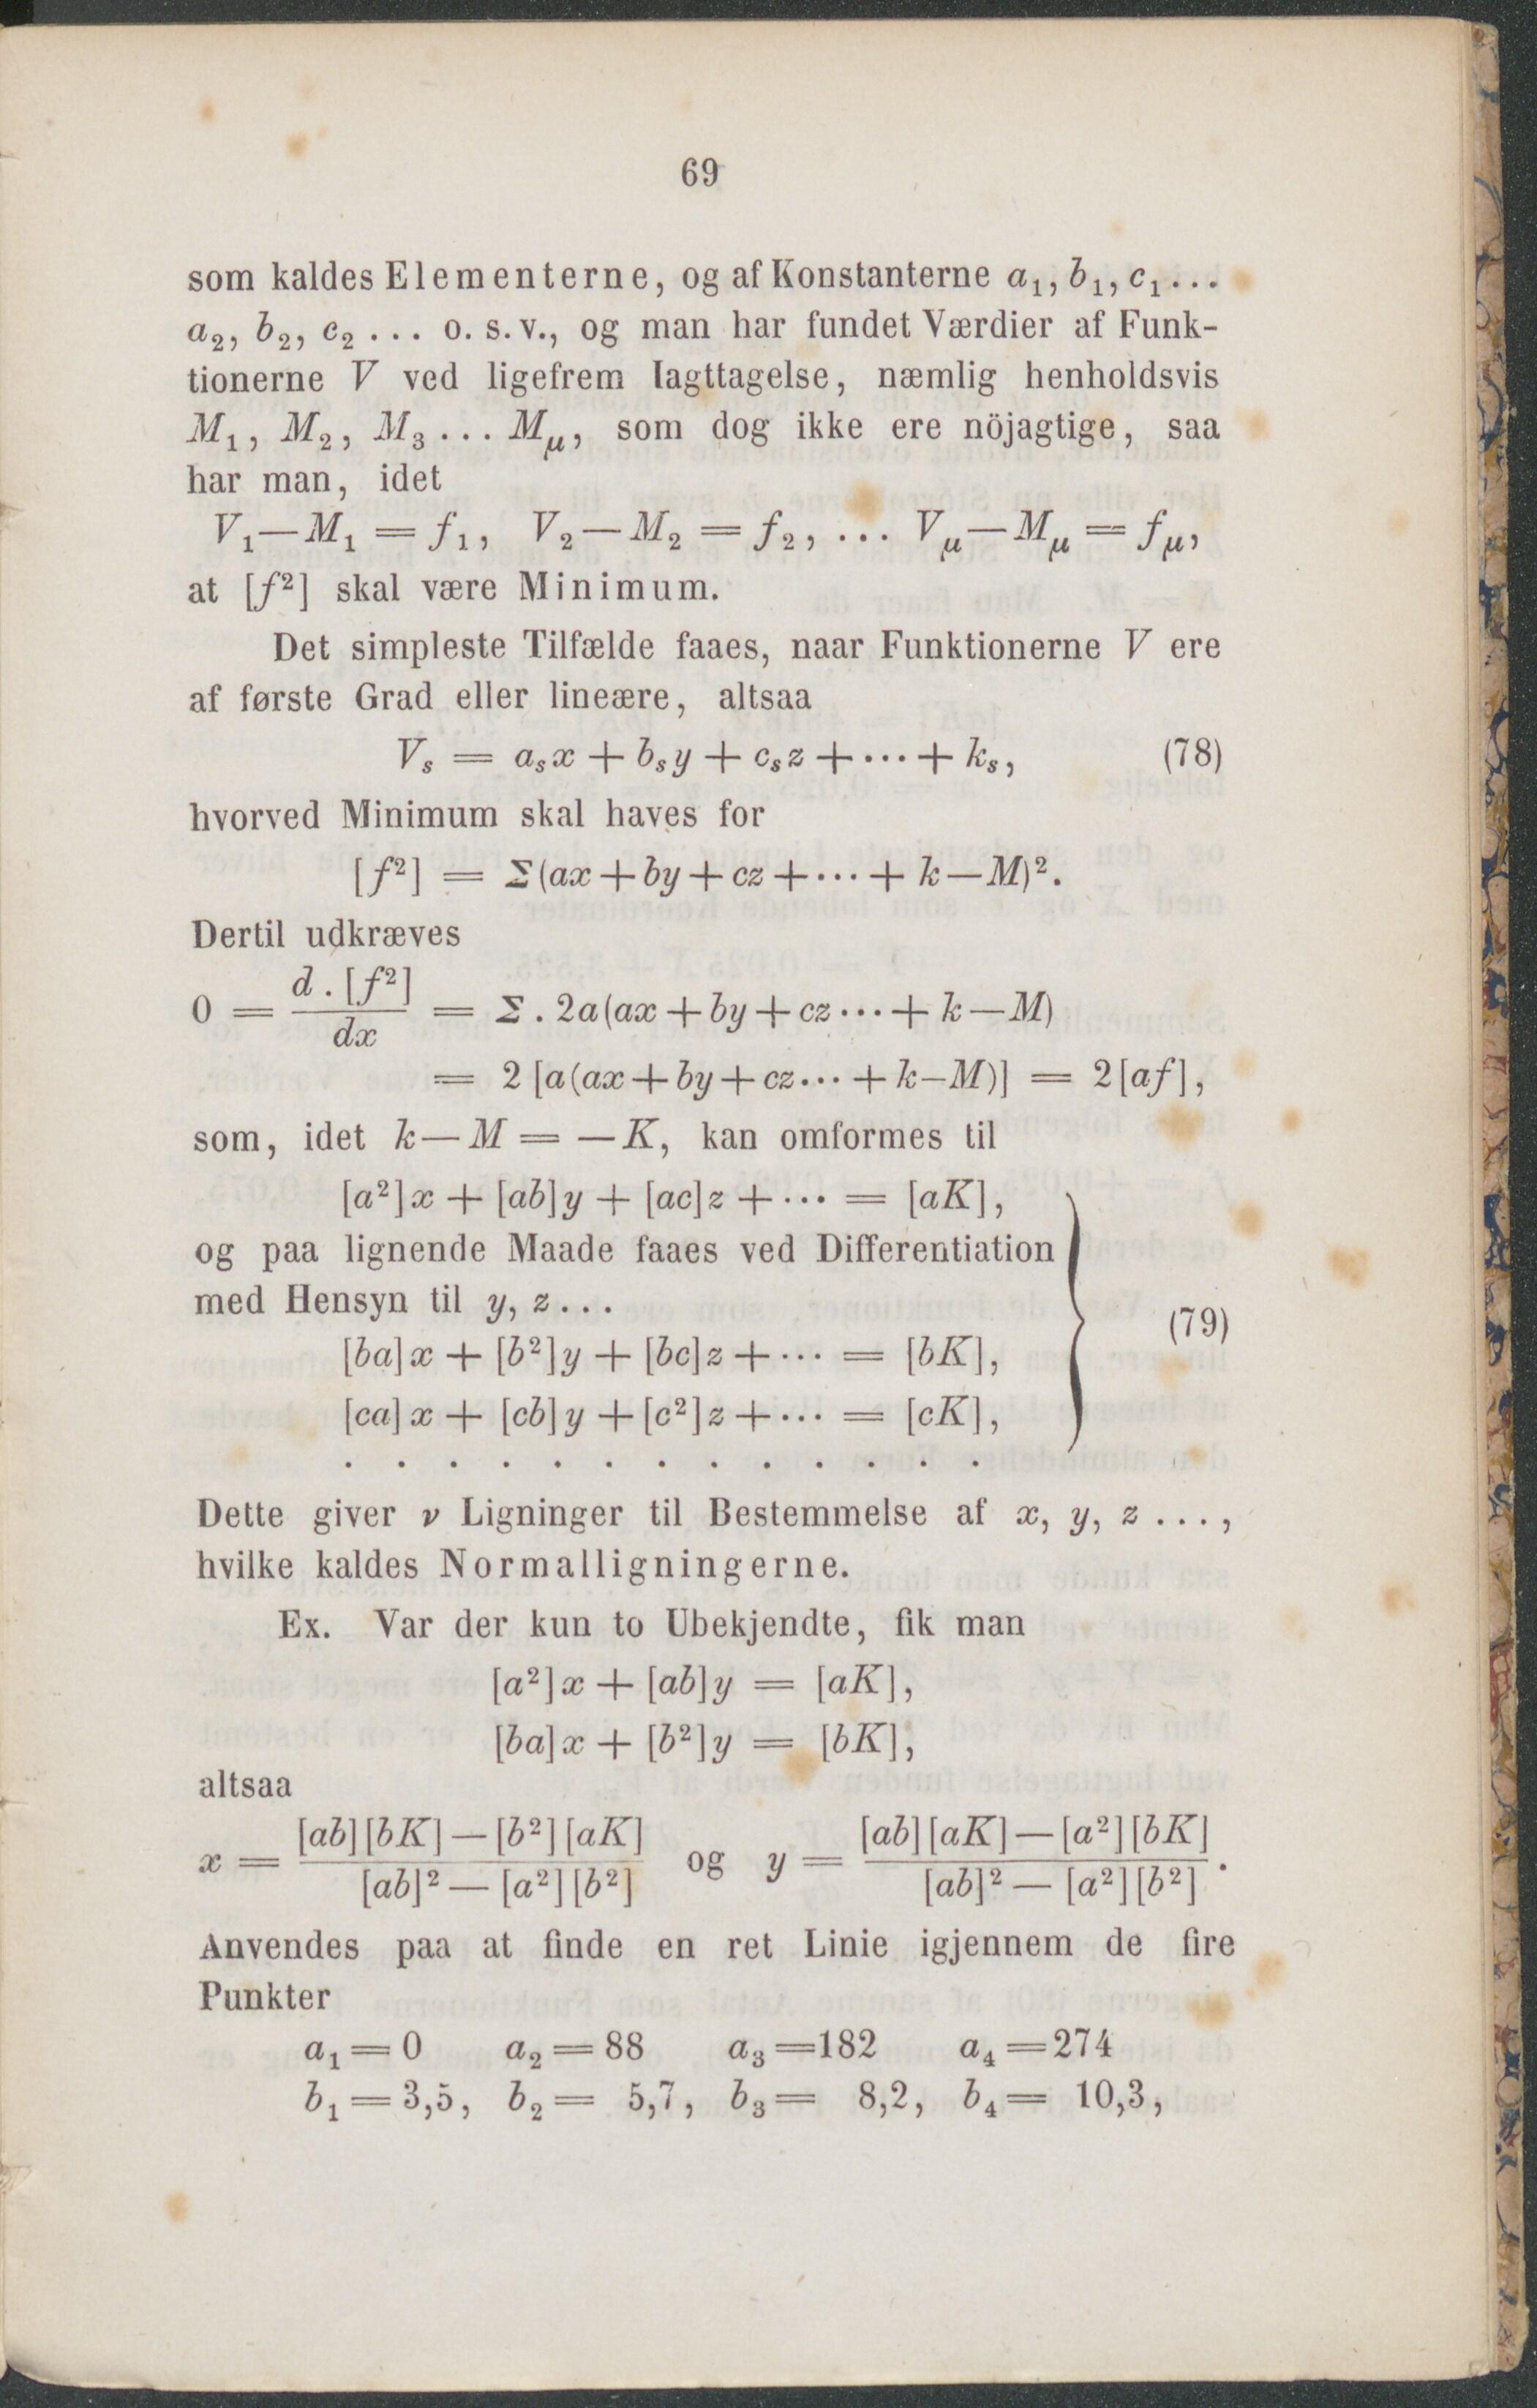 69
som kaldes Elementerne, og af Konstanterne a₁, b₁, c₁...
a₂, b₂, c₂ ... o. s. v., og man har fundet Værdier af Funk-
tionerne V ved ligefrem Iagttagelse, næmlig henholdsvis
M₁, M₂, M₃ ... M_μ, som dog ikke ere nöjagtige, saa
har man, idet
V₁—M₁ = f₁, V₂—M₂ = f₂, ... V_μ—M_μ = f_μ,
at [f²] skal være Minimum.
Det simpleste Tilfælde faaes, naar Funktionerne V ere
af første Grad eller lineære, altsaa
V_s = a_s x + b_s y + c_s z + ··· + k_s, (78)
hvorved Minimum skal haves for
[f²] = Σ(ax + by + cz + ··· + k — M)².
Dertil udkræves
0 = d . [f²] / dx = Σ . 2a(ax + by + cz ··· + k — M)
= 2 [a(ax + by + cz... + k—M)] = 2[af],
som, idet k — M = — K, kan omformes til
[a²]x + [ab]y + [ac]z + ··· = [aK],
og paa lignende Maade faaes ved Differentiation
med Hensyn til y, z...
(79)
[ba]x + [b²]y + [bc]z + ··· = [bK],
[ca]x + [cb]y + [c²]z + ··· = [cK],
. . . . . . . . . . . . .
Dette giver ν Ligninger til Bestemmelse af x, y, z ...,
hvilke kaldes Normalligningerne.
Ex. Var der kun to Ubekjendte, fik man
[a²]x + [ab]y = [aK],
[ba]x + [b²]y = [bK],
altsaa
x = [ab][bK] — [b²][aK] / [ab]² — [a²][b²] og y = [ab][aK] — [a²][bK] / [ab]² — [a²][b²] .
Anvendes paa at finde en ret Linie igjennem de fire
Punkter
a₁ = 0 a₂ = 88 a₃ = 182 a₄ = 274
b₁ = 3,5, b₂ = 5,7, b₃ = 8,2, b₄ = 10,3,